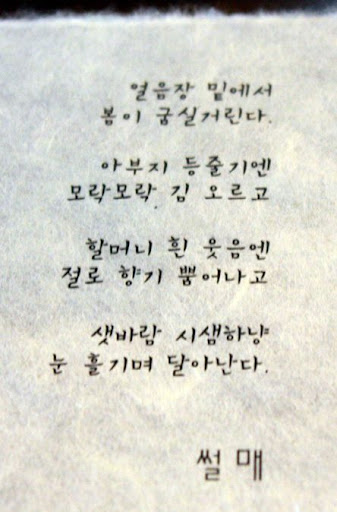 얼음장 밑에서
봄이 굼실거린다.
아부지 등줄기엔
모락모락 김 오르고
할머니 흰 웃음엔
절로 향기 뿜어나고
샛바람 시샘하냥
눈 흘기며 달아난다.
썰매